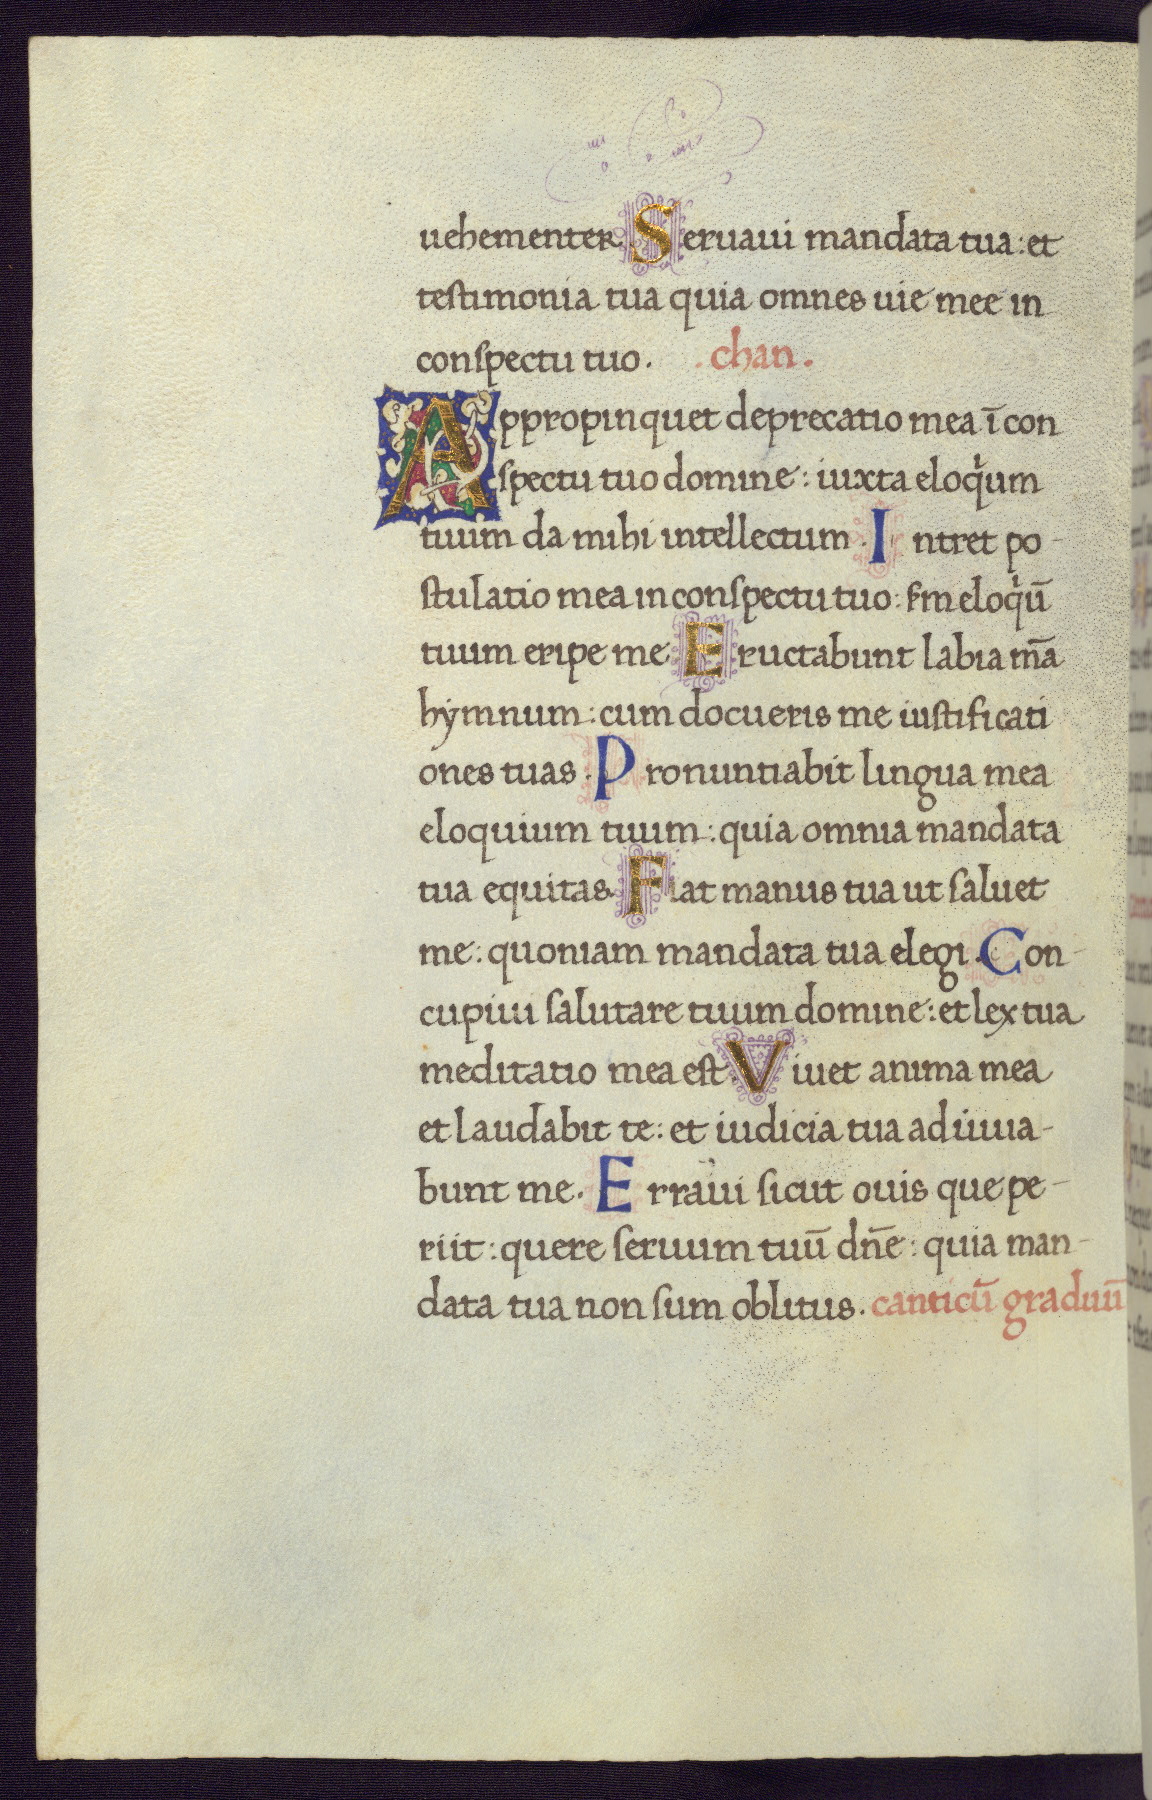 uehementer. Seruaui mandata tua: et
testimonia tua quia omnes uie mee in
conspectu tuo. .chan.
Appropinquet deprecatio mea ī con
spectu tuo domine: iuxta eloqͥum
tuum da mihi intellectum. Intret po-
stulatio mea in conspectu tuo: ẜm eloqͥū
tuum eripe me. Eructabunt labia m̄a
hẏmnum: cum docueris me iustificati
ones tuas. Pronuntiabit lingua mea
eloquium tuum: quia omnia mandata
tua equitas. Fiat manus tua ut saluet
me: quoniam mandata tua elegi. Con-
cupiui salutare tuum domine: et lex tua
meditatio mea est. Viuet anima mea
et laudabit te: et iudicia tua adiuua-
bunt me. Erraui sicut ouis que pe-
riit: quere seruum tuū dn̄e: quia man-
data tua non sum oblitus. canticū graduū